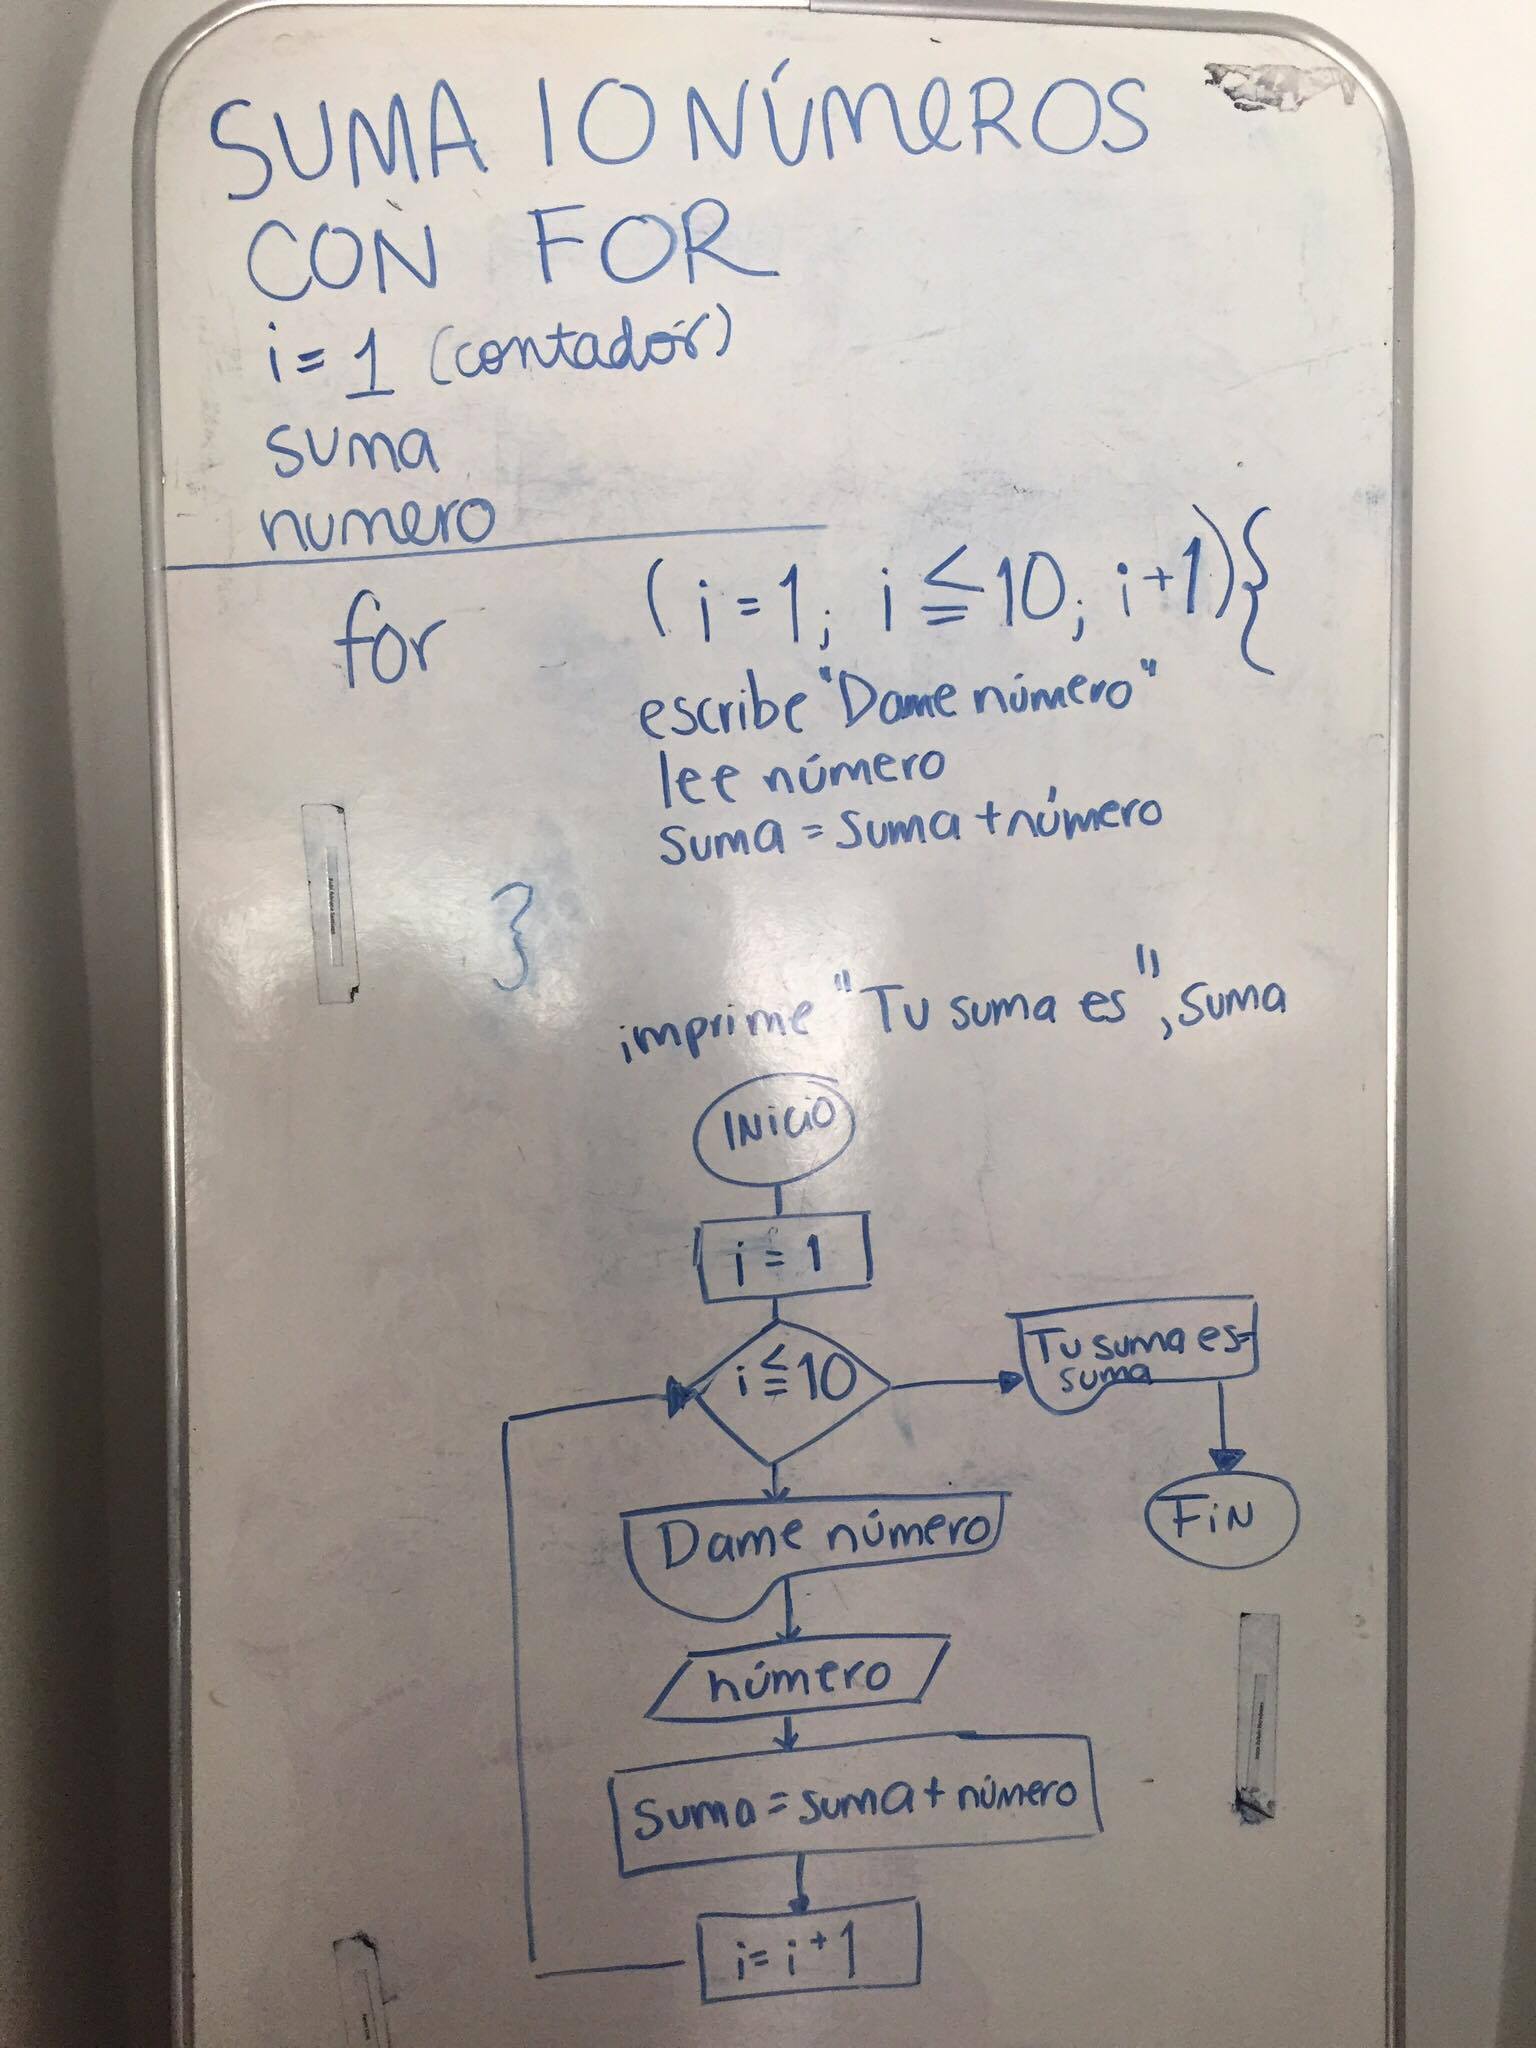 SUMA 10 NÚMEROS
CON FOR
i = 1 (contador)
suma
numero
for (i = 1; i ≦ 10; i+1){
escribe "Dame número"
lee número
suma = suma + número
}
imprime "Tu suma es", suma
INICIO
i = 1
i ≦ 10
Tu suma es
suma
FIN
Dame número
número
suma = suma + número
i = i + 1